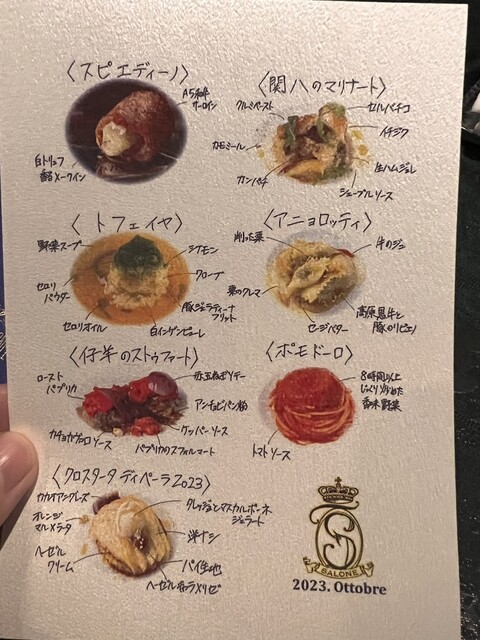 〈スピエディーノ〉
A5和牛
サーロイン
白トリュフ
香るメークイン
〈関八のマリナート〉
クルミペースト
セルバチコ
イチジク
カモミール
カンパチ
生ハムジュレ
シェーブルソース
〈トフェイヤ〉
野菜スープ
シナモン
クローブ
セロリ
パウダー
豚ジェラティーナ
フリット
セロリオイル
白インゲンピューレ
〈アニョロッティ〉
削った栗
牛のジュ
栗のクレマ
セージバター
豚のリピエノ
〈仔羊のストゥファート〉
ロースト
パプリカ
赤玉ねぎソテー
アンチョビパン粉
ケッパーソース
カチョカヴァロソース
パプリカのスフォルマート
〈ポモドーロ〉
8時間以上
じっくり炒めた
香味野菜
トマトソース
〈クロスタータ ディ ペーラ2023〉
カカオアングレーズ
オレンジ
マルメラータ
ジェラート
洋ナシ
ヘーゼル
クリーム
パイ生地
ヘーゼルキャラメリゼ
SALONE
2023. Ottobre